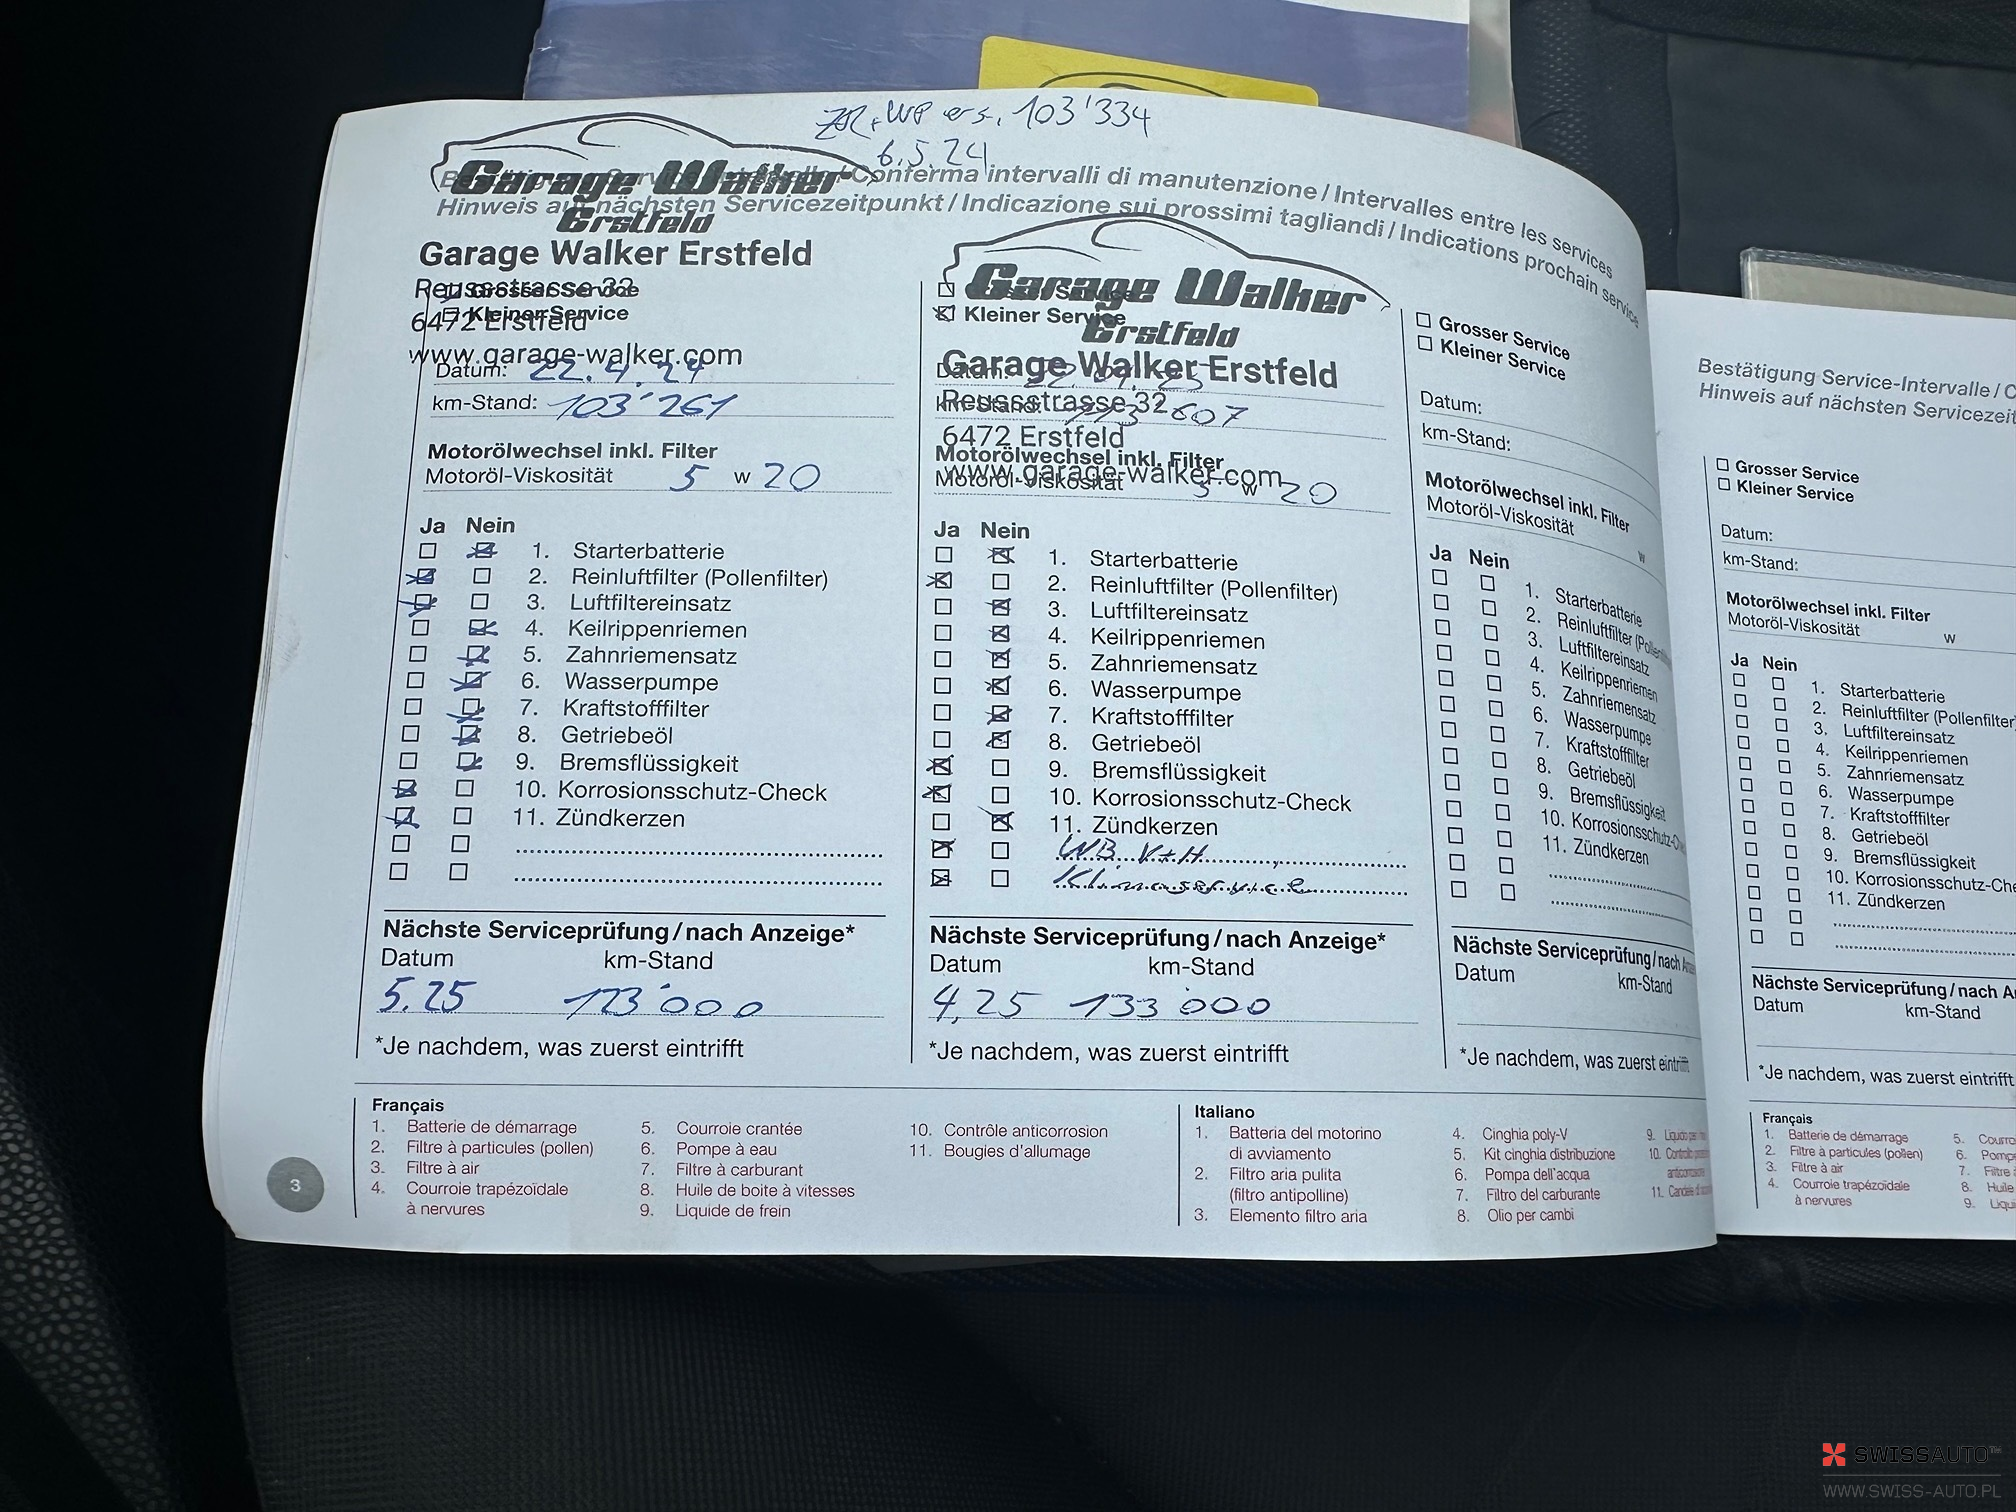 ZR + WP ers. 103'334
6.5.24
Garage Walker
Erstfeld
Conferma intervalli di manutenzione / Intervalles entre les services
Hinweis auf nächsten Servicezeitpunkt / Indicazione sui prossimi tagliandi / Indications prochain service
Garage Walker Erstfeld
Reussstrasse 32
Grosser Service
6472 Erstfeld
Kleiner Service
www.garage-walker.com
Datum: 22.4.24
km-Stand: 103'261
Motorölwechsel inkl. Filter
Motoröl-Viskosität 5 w 20
Ja Nein
1. Starterbatterie
2. Reinluftfilter (Pollenfilter)
3. Luftfiltereinsatz
4. Keilrippenriemen
5. Zahnriemensatz
6. Wasserpumpe
7. Kraftstofffilter
8. Getriebeöl
9. Bremsflüssigkeit
10. Korrosionsschutz-Check
11. Zündkerzen
Nächste Serviceprüfung/nach Anzeige*
Datum km-Stand
5.25 123'000
*Je nachdem, was zuerst eintrifft
Garage Walker
Erstfeld
Kleiner Service
Garage Walker Erstfeld
Datum:
Reussstrasse 32
km-Stand: 113'607
6472 Erstfeld
Motorölwechsel inkl. Filter
www.garage-walker.com
Motoröl-Viskosität 5 w 20
Ja Nein
1. Starterbatterie
2. Reinluftfilter (Pollenfilter)
3. Luftfiltereinsatz
4. Keilrippenriemen
5. Zahnriemensatz
6. Wasserpumpe
7. Kraftstofffilter
8. Getriebeöl
9. Bremsflüssigkeit
10. Korrosionsschutz-Check
11. Zündkerzen
WB. V+H
Klimaservice
Nächste Serviceprüfung/nach Anzeige*
Datum km-Stand
4,25 133'000
*Je nachdem, was zuerst eintrifft
Grosser Service
Kleiner Service
Datum:
km-Stand:
Motorölwechsel inkl. Filter
Motoröl-Viskosität w
Ja Nein
1. Starterbatterie
2. Reinluftfilter
3. Luftfiltereinsatz
4. Keilrippenriemen
5. Zahnriemensatz
6. Wasserpumpe
7. Kraftstofffilter
8. Getriebeöl
9. Bremsflüssigkeit
10. Korrosionsschutz-
11. Zündkerzen
Nächste Serviceprüfung/nach
Datum km-Stand
*Je nachdem, was zuerst eintrifft
Français
1. Batterie de démarrage
2. Filtre à particules (pollen)
3. Filtre à air
4. Courroie trapézoïdale
à nervures
5. Courroie crantée
6. Pompe à eau
7. Filtre à carburant
8. Huile de boite à vitesses
9. Liquide de frein
10. Contrôle anticorrosion
11. Bougies d'allumage
Italiano
1. Batteria del motorino
di avviamento
2. Filtro aria pulita
(filtro antipolline)
3. Elemento filtro aria
4. Cinghia poly-V
5. Kit cinghia distribuzione
6. Pompa dell'acqua
7. Filtro del carburante
8. Olio per cambi
9. Liquido
10. Controllo
anticorrosione
11. Candele
3
Bestätigung Service-Intervalle / C
Hinweis auf nächsten Servicezeit
Grosser Service
Kleiner Service
Datum:
km-Stand:
Motorölwechsel inkl. Filter
Motoröl-Viskosität w
Ja Nein
1. Starterbatterie
2. Reinluftfilter (Pollenfilter
3. Luftfiltereinsatz
4. Keilrippenriemen
5. Zahnriemensatz
6. Wasserpumpe
7. Kraftstofffilter
8. Getriebeöl
9. Bremsflüssigkeit
10. Korrosionsschutz-Che
11. Zündkerzen
Nächste Serviceprüfung/nach An
Datum km-Stand
*Je nachdem, was zuerst eintrifft
Français
1. Batterie de démarrage
2. Filtre à particules (pollen)
3. Filtre à air
4. Courroie trapézoïdale
à nervures
5. Courro
6. Pompe
7. Filtre
8. Huile
9. Liqui
SWISSAUTO™
WWW.SWISS-AUTO.PL